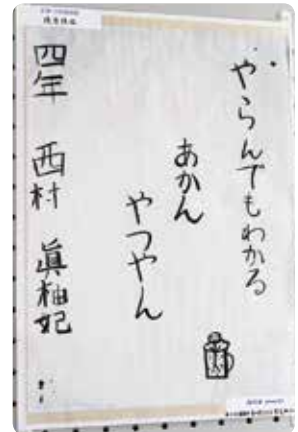 やらんでもわかる
あかん
やつやん
四年 西村 眞柚妃